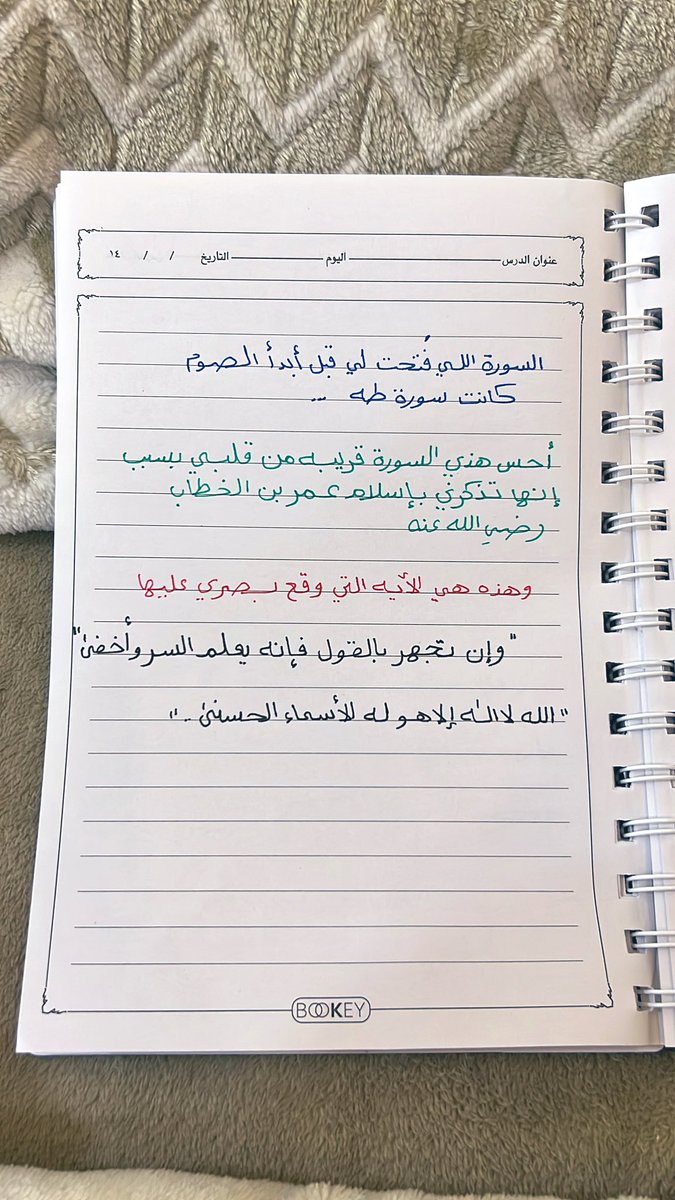 عنوان الدرس اليوم التاريخ / / ١٤
السورة اللي فُتحت لي قبل أبدأ الصوم
كانت سورة طه ...
أحس هذي السورة قريبه من قلبي بسبب
إنها تذكرني بإسلام عمر بن الخطاب
رضي الله عنه
وهذه هي الأيه التي وقع بصري عليها
"وإن تجهر بالقول فإنه يعلم السر وأخفىٰ"
"الله لا الـٰه إلا هو له الأسماء الحسنىٰ .."
BOOKEY